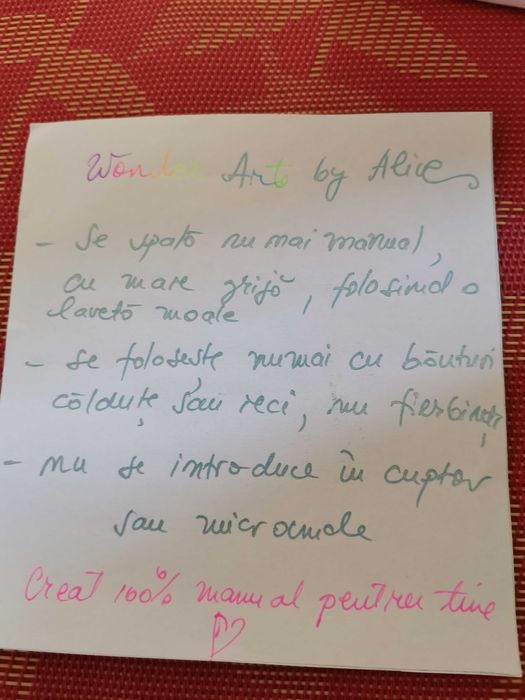 Wonder Arts by Alice
- Se spală numai manual,
cu mare grijă, folosind o
lavetă moale
- se folosește numai cu băuturi
călduțe sau reci, nu fierbinți
- nu se introduce în cuptor
sau microunde
Creat 100% manual pentru tine